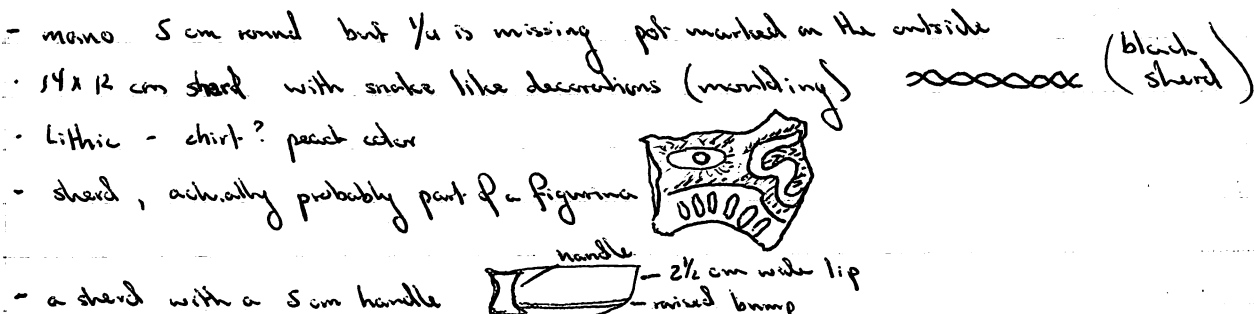 - mano 5 cm round but 1/4 is missing pot marked on the outside
· 14 x 12 cm sherd with snake like decorations (moulding) (black sherd)
· Lithic - chirt? peach color
- sherd, actually probably part of a figurine
handle
- 2½ cm wide lip
- a sherd with a 5 cm handle - raised bump